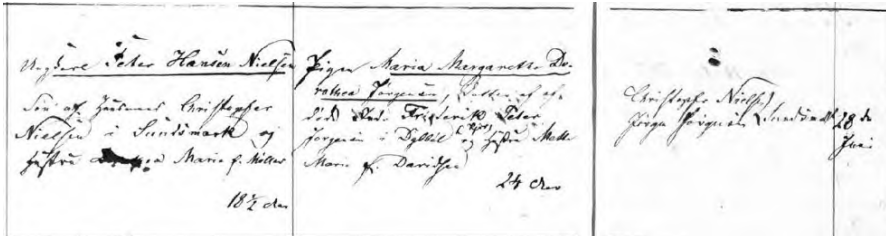 Ungkarl Peter Hansen Nielsen
Søn af Huusmd Christopher
Nielsen i Sundsmark og
Hustru Marie f. Möller
18½
Pigen Maria Margaretha Do-
rothea Jörgensen, Datter af af-
døde Frederik Peter
Jörgensen i Dybböl og Hustru Mette
Marie f. Davidsen
24
Christopher Nielsen
Jörgen Jörgensen Sundsmark
28de
Juni